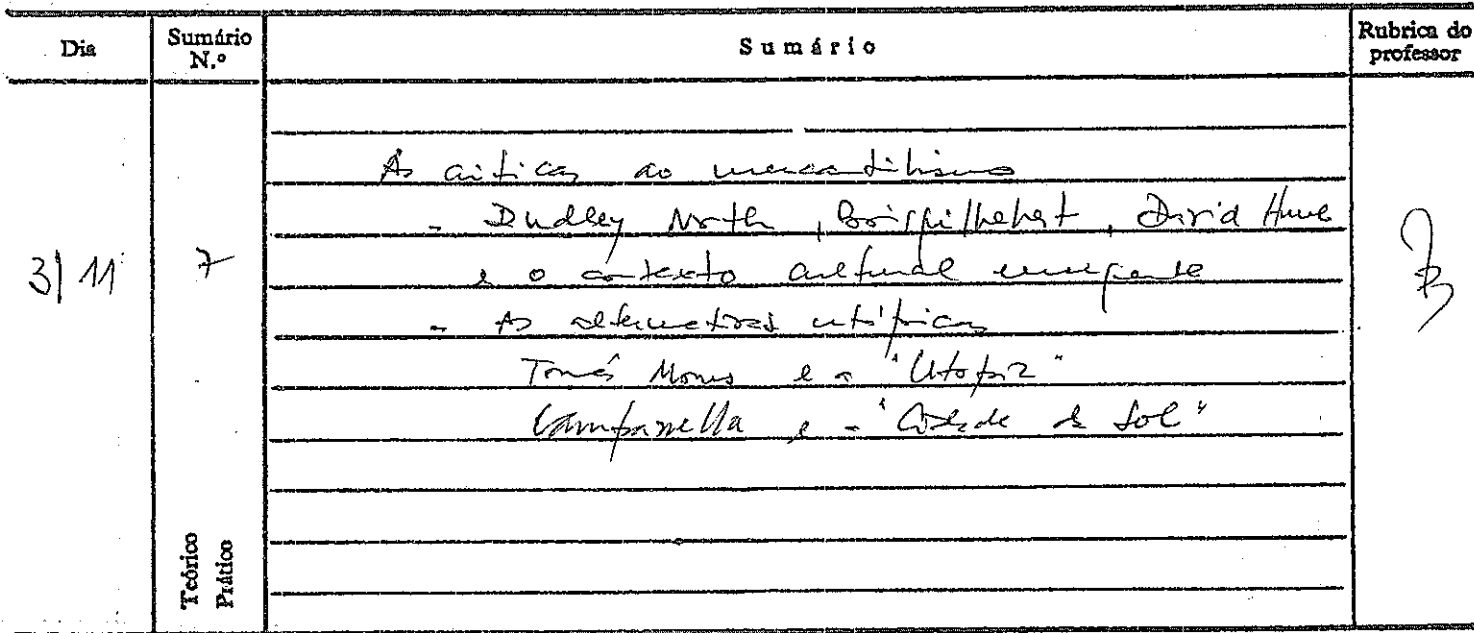 Dia
Sumário N.º
Sumário
Rubrica do professor
3/11
7
As críticas ao mercantilismo
- Dudley North, Boisguilhebert, David Hume
e o contexto cultural emergente
- As alternativas utópicas
Tomás Morus e a "Utopia"
Campanella e a "Cidade do Sol"
Teórico
Prático